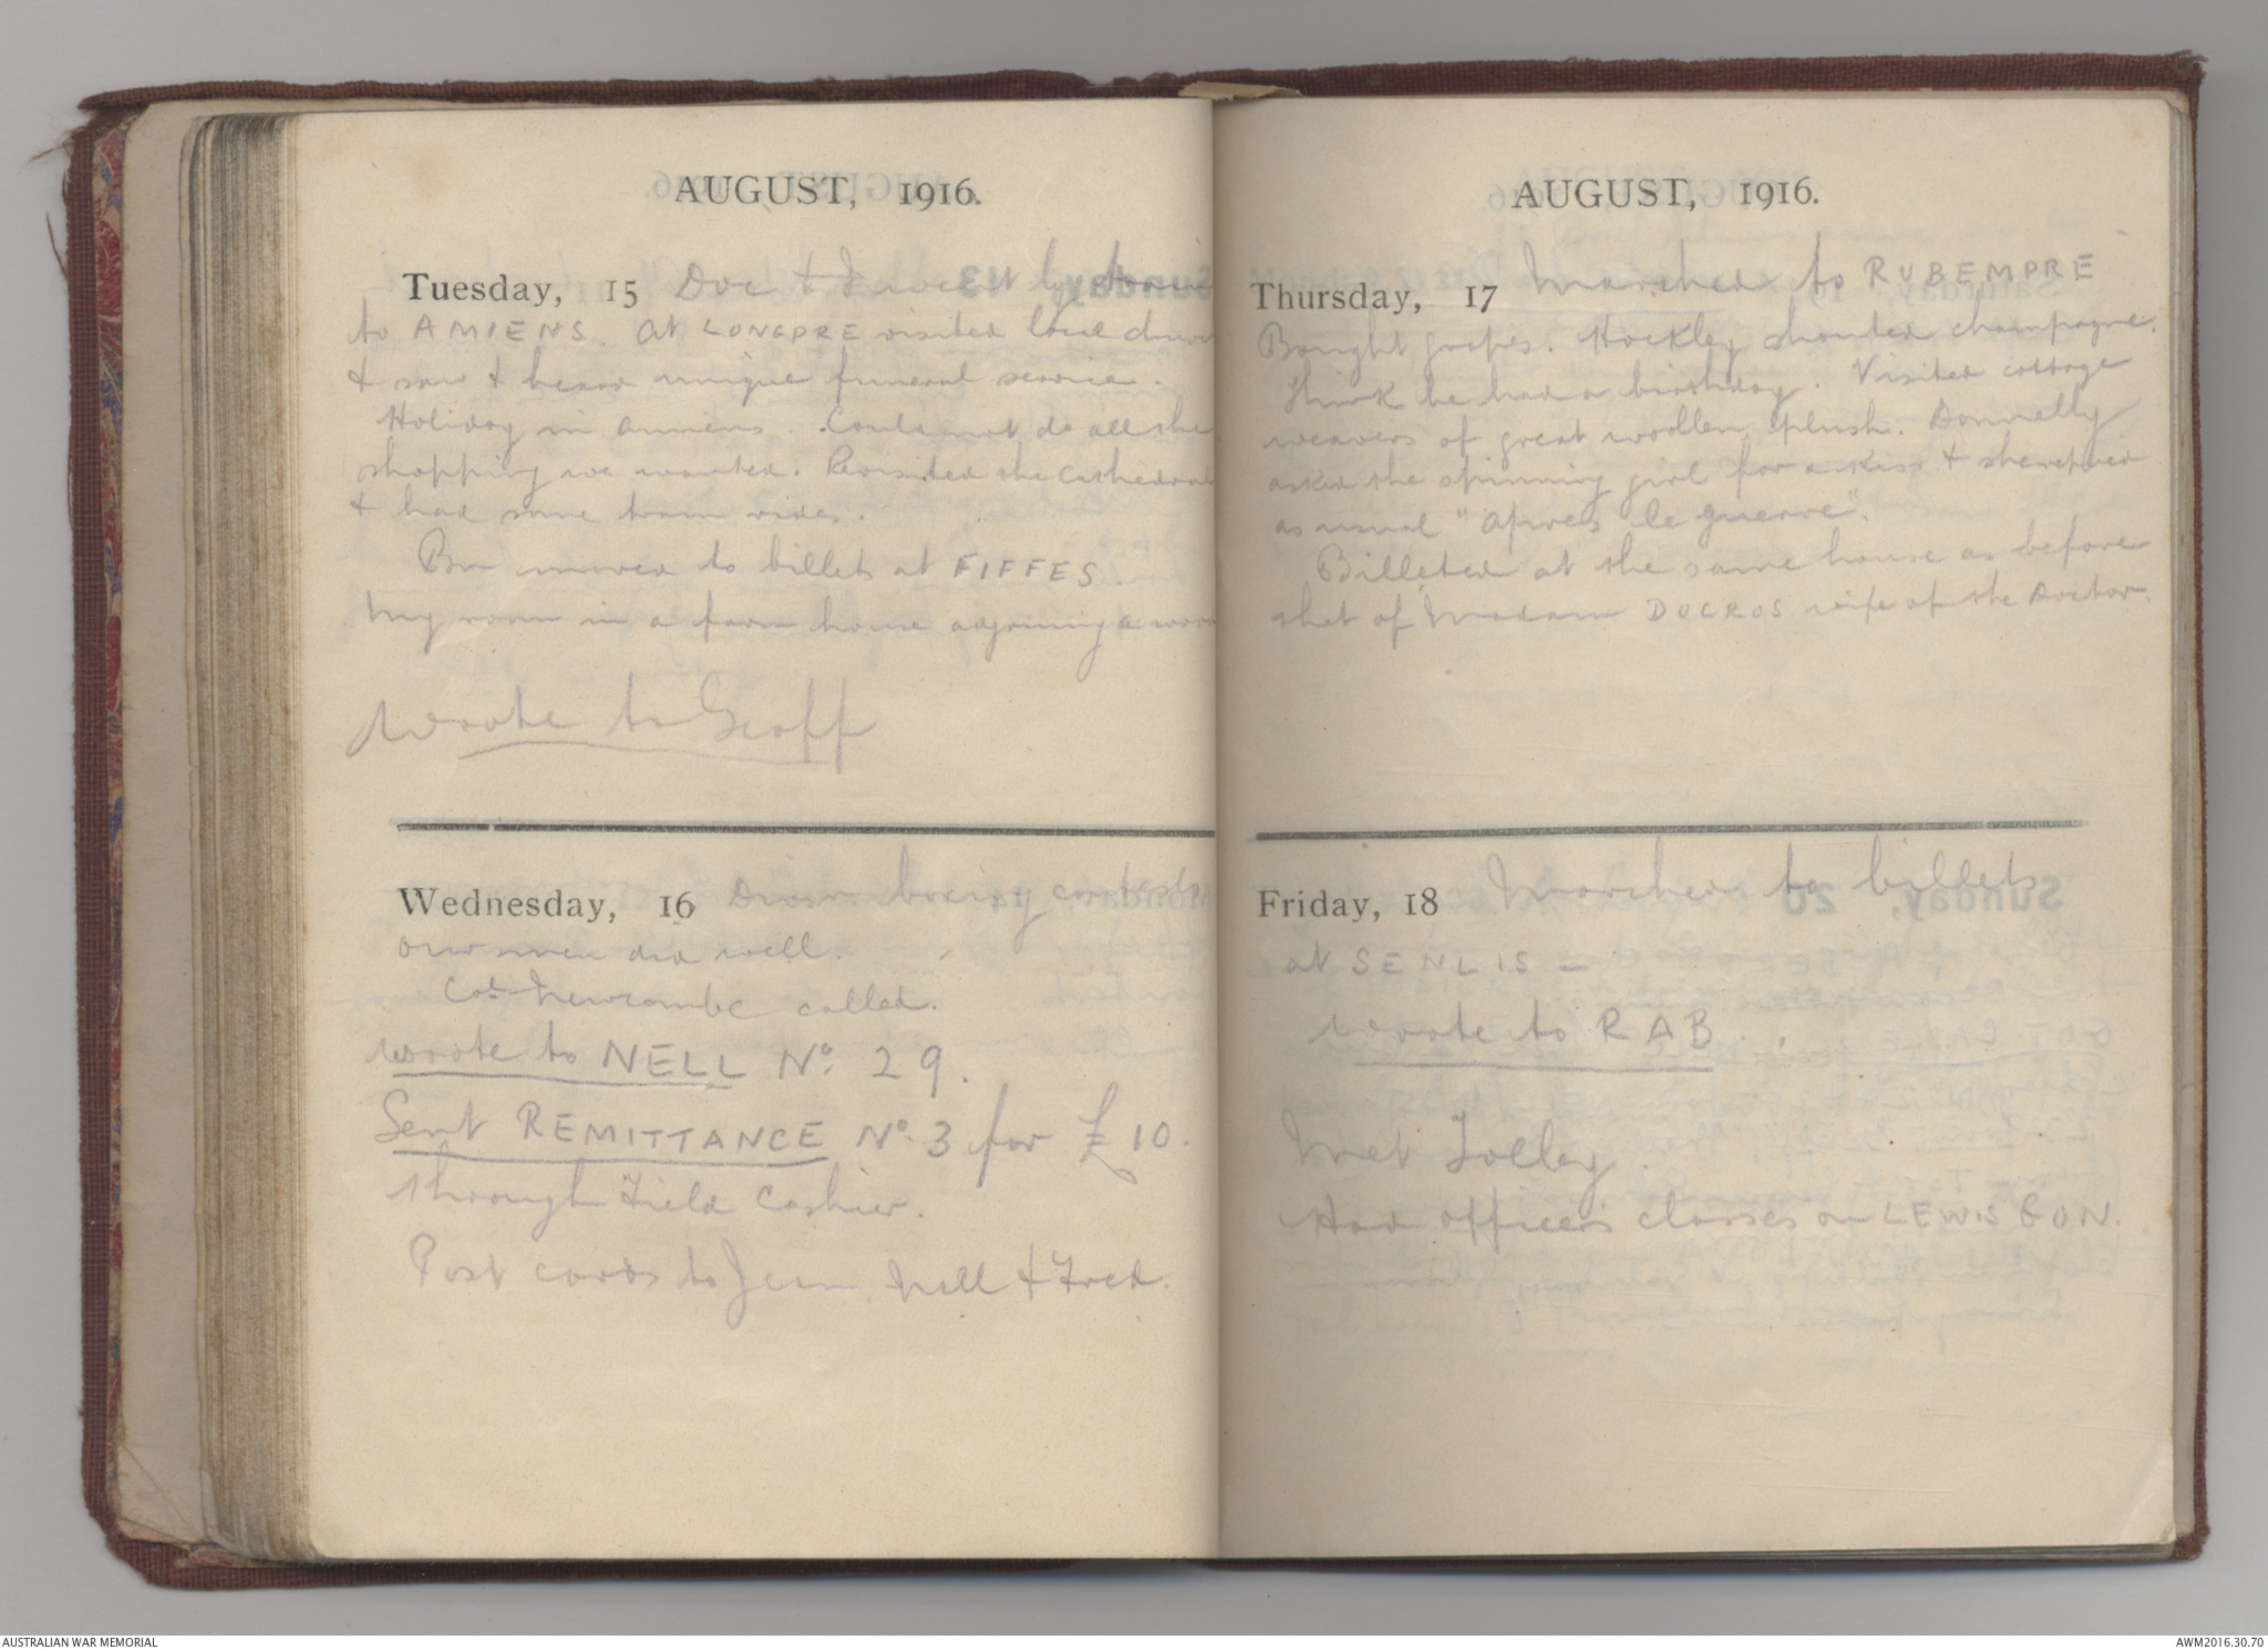 AUGUST, 1916.
Tuesday, 15 Doc & I went by train
to AMIENS. At LONGPRE visited local church
& saw & heard unique funeral service.
Holiday in Amiens. Could not do all the
shopping we wanted. Revisited the Cathedral
& had some tram rides.
Bn moved to billets at FIFFES.
My room in a farm house adjoining a
Wrote to Geoff
Wednesday, 16 Divn boxing contests
our men did well.
Col Newcombe called.
Wrote to NELL No. 29.
Sent REMITTANCE No. 3 for £10.
through Field Cashier.
Post cards to Jean, Nell & Fred.
AUGUST, 1916.
Thursday, 17 Marched to RUBEMPRE
Bought grapes. Hockley shouted champagne.
Think he had a birthday. Visited cottage
weavers of great woollen plush. Donnelly
asked the spinning girl for a kiss & she replied
as usual "apres le guerre".
Billeted at the same house as before
that of Madam DUCROS wife of the Doctor.
Friday, 18 Marched to billets
at SENLIS –
Wrote to RAB.
Met Tolley
Had officers classes on LEWIS GUN.
AUSTRALIAN WAR MEMORIAL
AWM2016.30.70